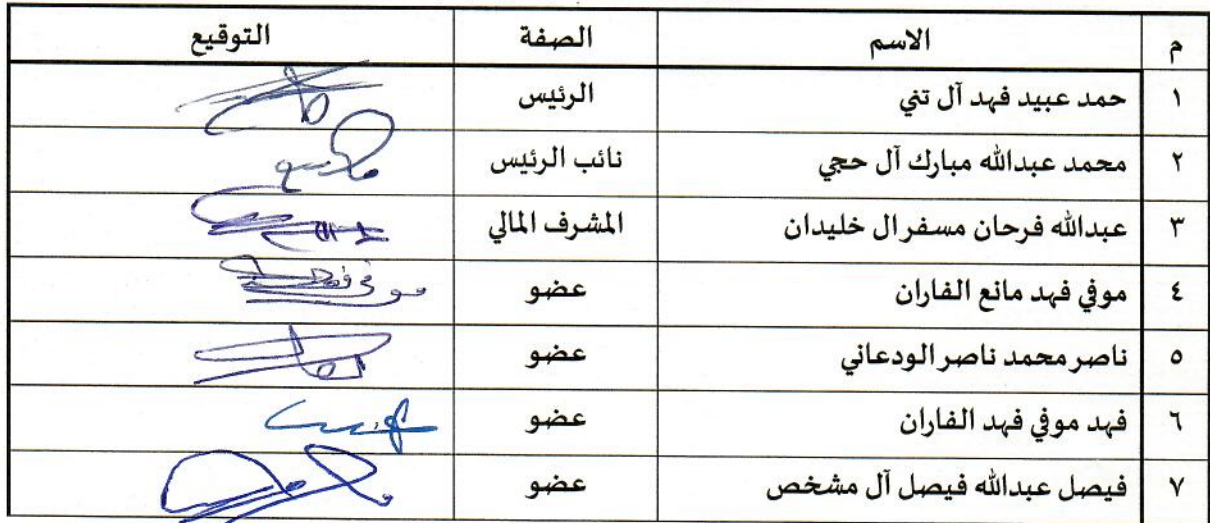 م الاسم الصفة التوقيع
١ حمد عبيد فهد آل تني الرئيس
٢ محمد عبدالله مبارك آل حجي نائب الرئيس
٣ عبدالله فرحان مسفر ال خليدان المشرف المالي
٤ موفي فهد مانع الفاران عضو
٥ ناصر محمد ناصر الودعاني عضو
٦ فهد موفي فهد الفاران عضو
٧ فيصل عبدالله فيصل آل مشخص عضو